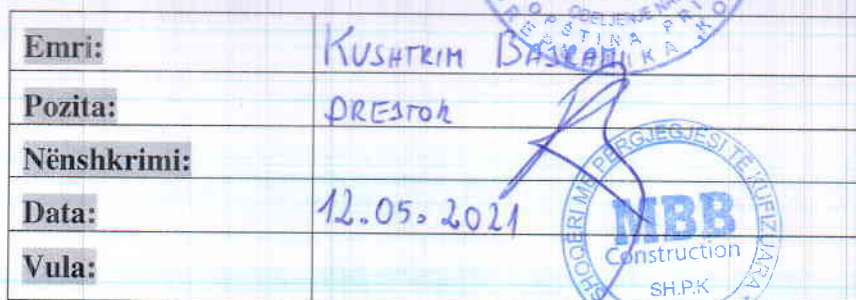 Emri: KUSHTRIM BAJRAMI
Pozita: DREJTOR
Nënshkrimi:
Data: 12.05.2021
Vula:
SHOQERI ME PERGJEGJESI TE KUFIZUARA
MBB
Construction
SH.P.K